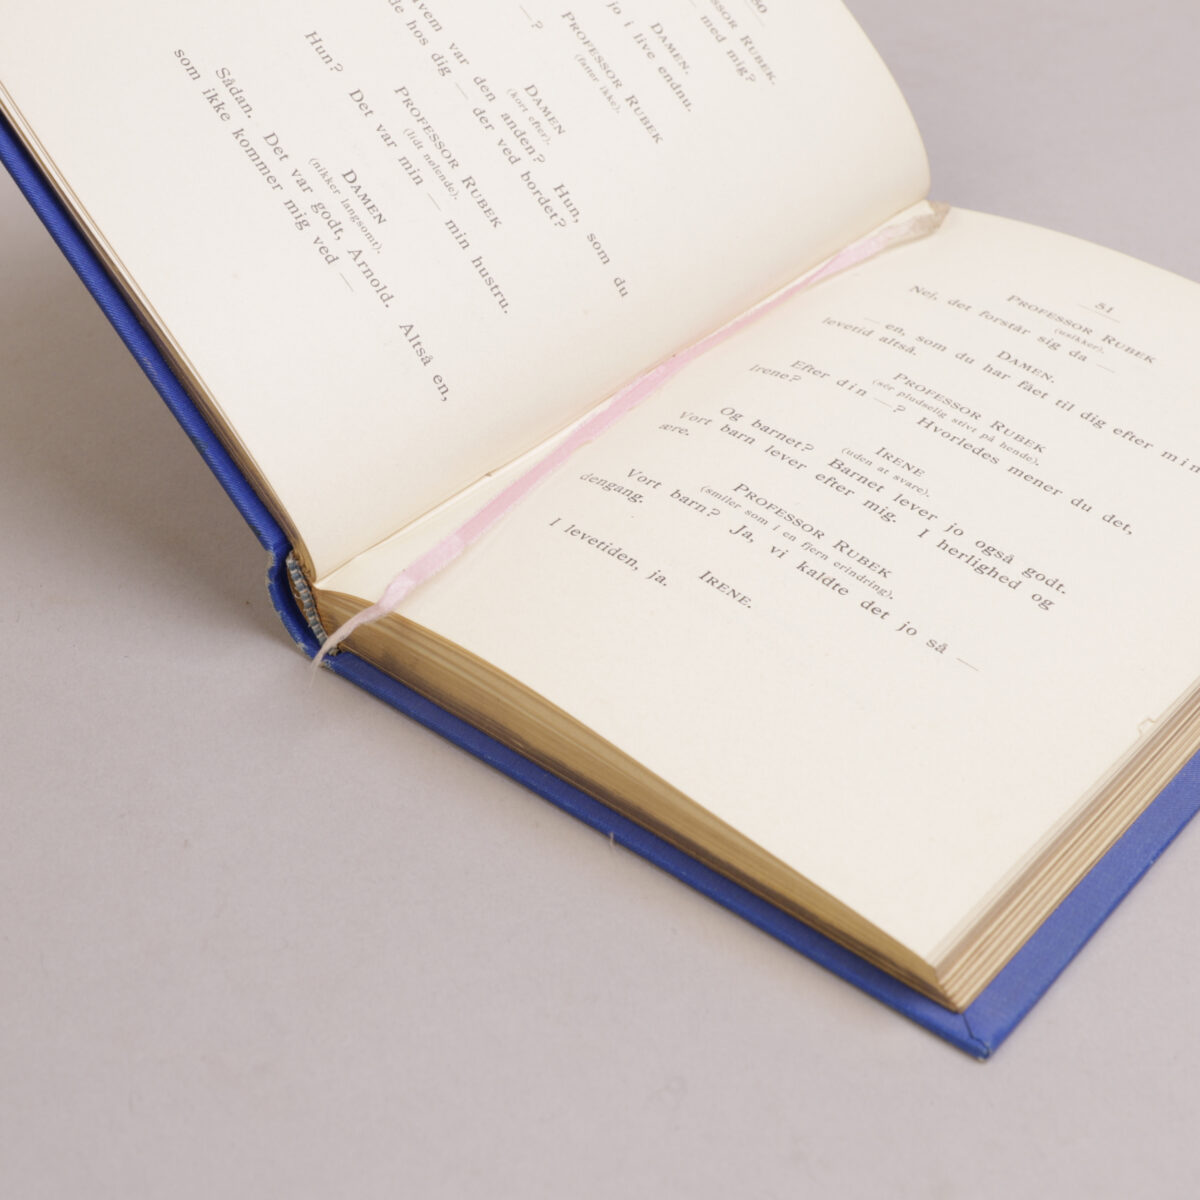 50
OR RUBEK.
med mig?
DAMEN.
jo i live endnu.
PROFESSOR RUBEK
(fatter ikke).
—?
DAMEN
(kort efter).
var den anden? Hun, som du
de hos dig — der ved bordet?
PROFESSOR RUBEK
(lidt nølende).
Hun? Det var min — min hustru.
DAMEN
(nikker langsomt).
Sådan. Det var godt, Arnold. Altså en,
som ikke kommer mig ved —
51
PROFESSOR RUBEK
(usikker).
Nej, det forstår sig da —
DAMEN.
— en, som du har fået til dig efter min
levetid altså.
PROFESSOR RUBEK
(sér pludselig stivt på hende).
Efter din —? Hvorledes mener du det,
Irene?
IRENE
(uden at svare).
Og barnet? Barnet lever jo også godt.
Vort barn lever efter mig. I herlighed og
ære.
PROFESSOR RUBEK
(smiler som i en fjern erindring).
Vort barn? Ja, vi kaldte det jo så —
dengang.
IRENE.
I levetiden, ja.